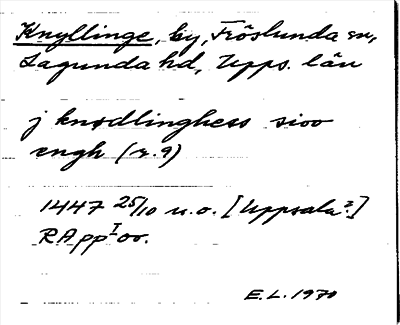 Knyllinge, by, Fröslunda sn,
Lagunda hd, Upps. län
j knødlinghess sioo
engh (r. 9)
1447 25/10 u.o. [Uppsala?]
RA pp I oo.
E.L. 1970